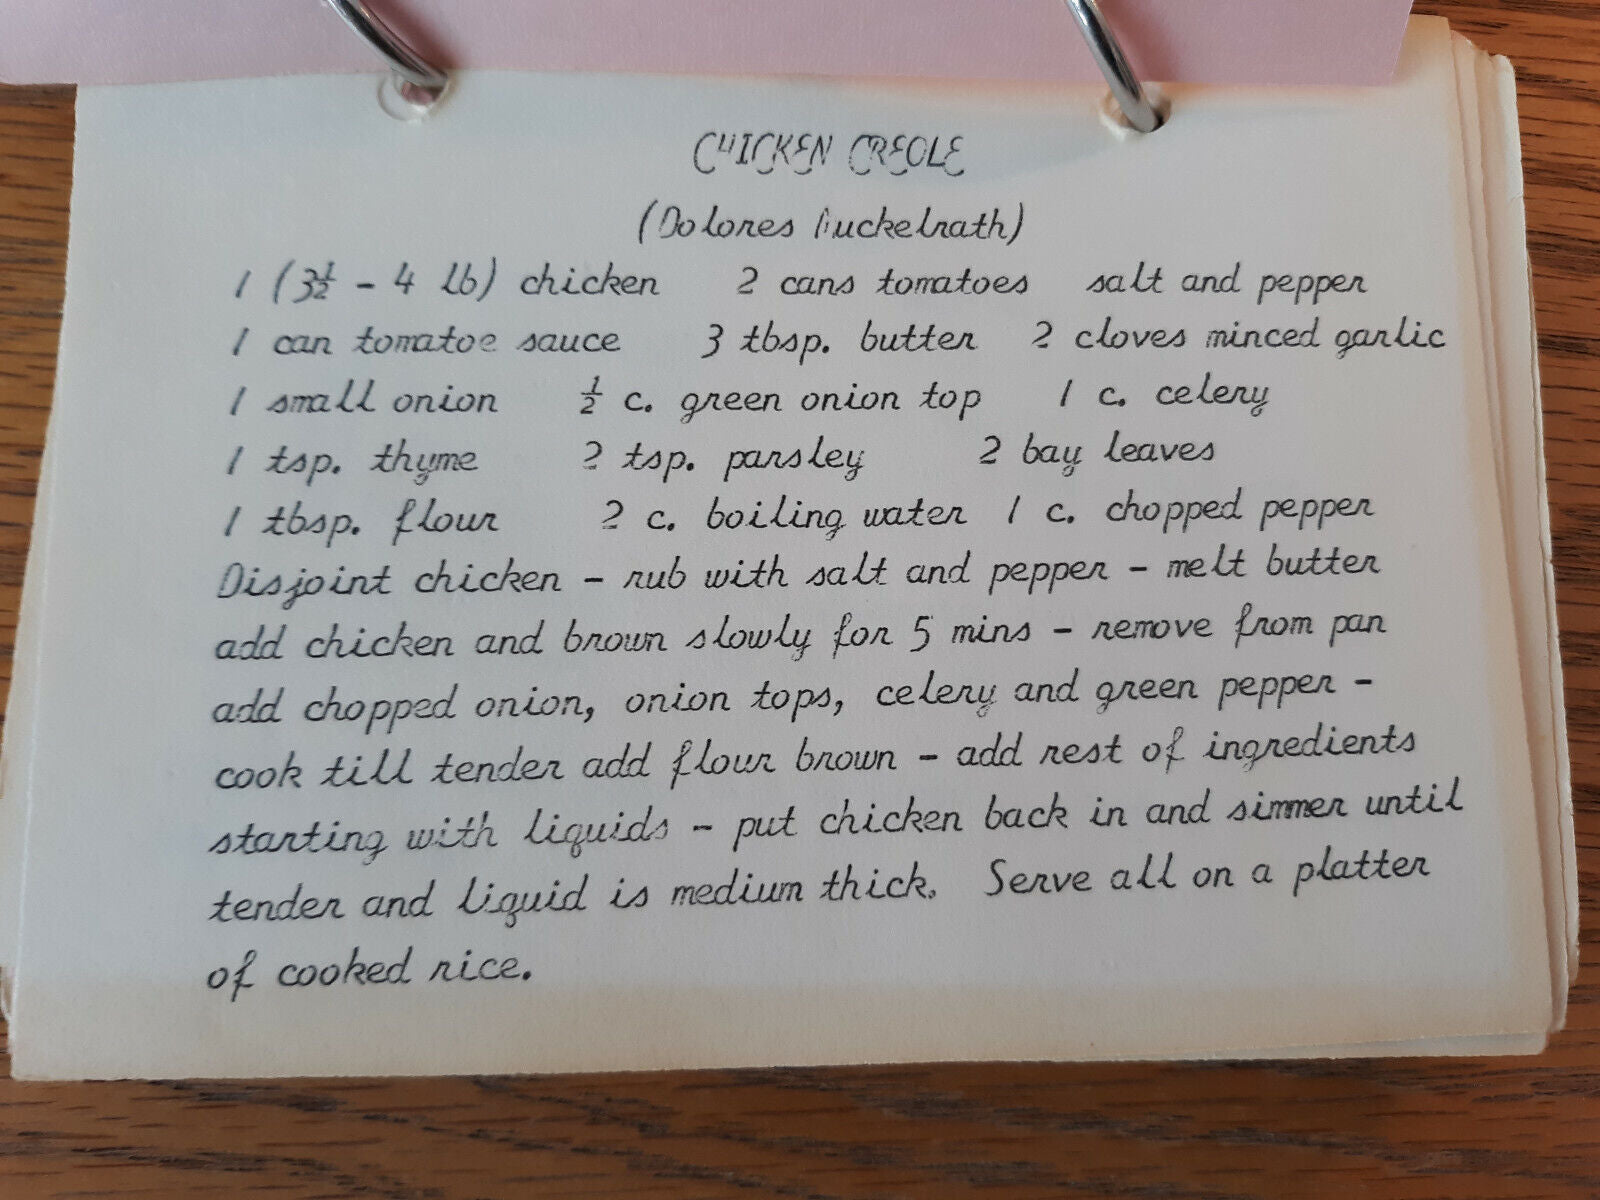 CHICKEN CREOLE
(Dolores
1 (3½ - 4 lb) chicken 2 cans tomatoes salt and pepper
1 can tomatoe sauce 3 tbsp. butter 2 cloves minced garlic
1 small onion ½ c. green onion top 1 c. celery
1 tsp. thyme 2 tsp. parsley 2 bay leaves
1 tbsp. flour 2 c. boiling water 1 c. chopped pepper
Disjoint chicken - rub with salt and pepper - melt butter
add chicken and brown slowly for 5 mins - remove from pan
add chopped onion, onion tops, celery and green pepper -
cook till tender add flour brown - add rest of ingredients
starting with liquids - put chicken back in and simmer until
tender and liquid is medium thick. Serve all on a platter
of cooked rice.